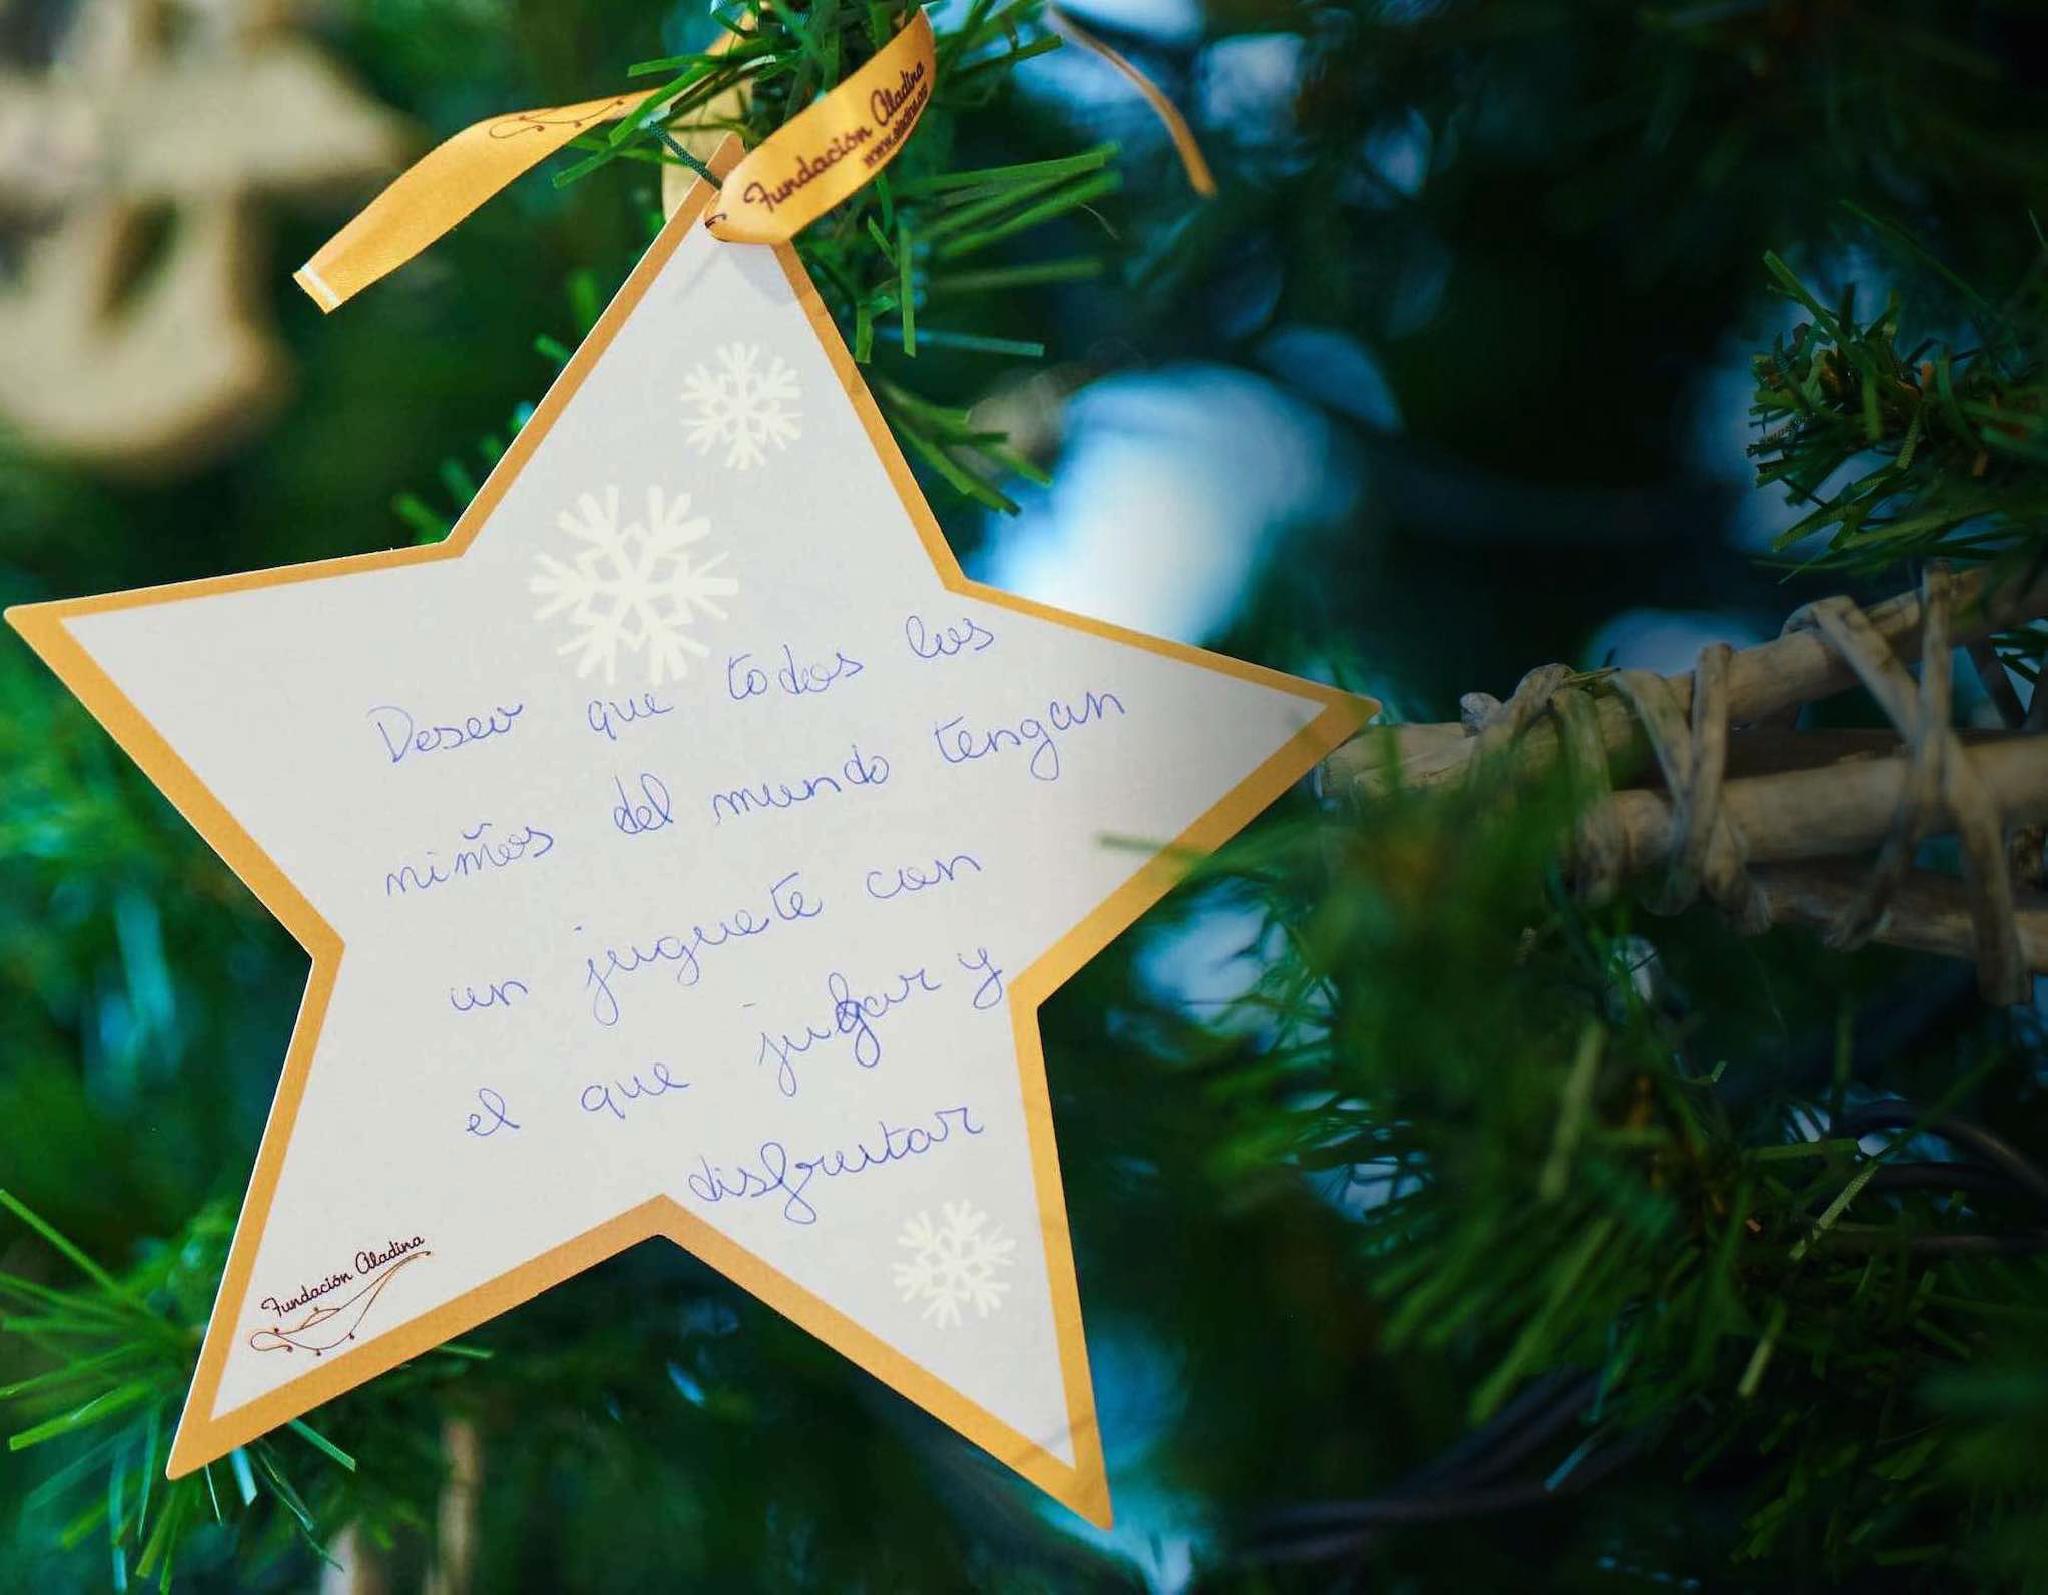 Fundación Aladina
Deseo que todos los
niños del mundo tengan
un juguete con
el que jugar y
disfrutar
Fundación Aladina